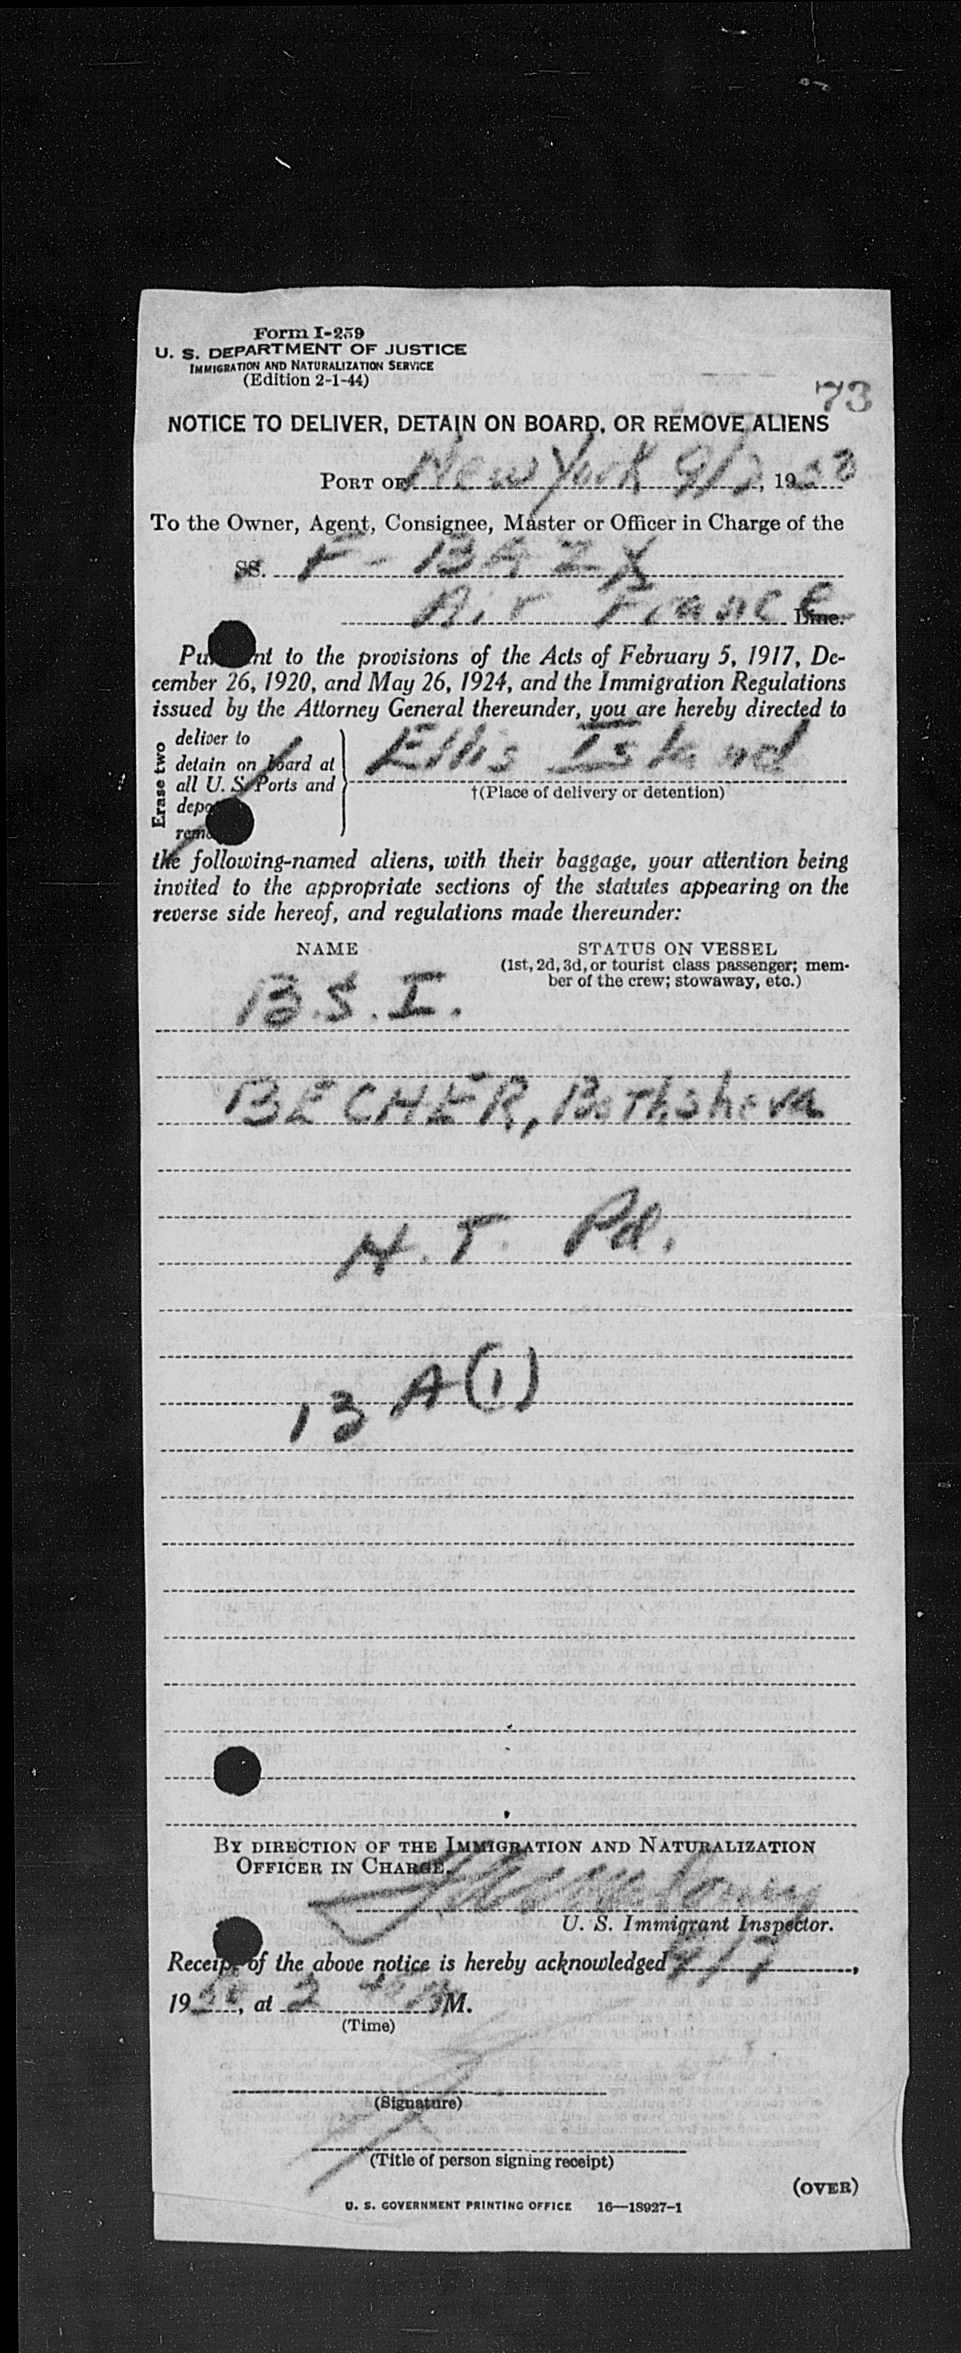 Form I-259
U. S. DEPARTMENT OF JUSTICE
IMMIGRATION AND NATURALIZATION SERVICE
(Edition 2-1-44)
73
NOTICE TO DELIVER, DETAIN ON BOARD, OR REMOVE ALIENS
PORT OF New York 9/7, 19
To the Owner, Agent, Consignee, Master or Officer in Charge of the
SS. F-BAZX
Air France Line.
to the provisions of the Acts of February 5, 1917, De-
cember 26, 1920, and May 26, 1924, and the Immigration Regulations
issued by the Attorney General thereunder, you are hereby directed to
Erase two
deliver to
detain on board at
all U. S. Ports and
Ellis Island
†(Place of delivery or detention)
the following-named aliens, with their baggage, your attention being
invited to the appropriate sections of the statutes appearing on the
reverse side hereof, and regulations made thereunder:
NAME
STATUS ON VESSEL
(1st, 2d, 3d, or tourist class passenger; mem-
ber of the crew; stowaway, etc.)
B.S.I.
BECHER, Bathsheva
H.T. Pd.
13 A(1)
BY DIRECTION OF THE IMMIGRATION AND NATURALIZATION
OFFICER IN CHARGE.
U. S. Immigrant Inspector.
Receipt of the above notice is hereby acknowledged 9/7,
19, at 2 M.
(Time)
(Signature)
(Title of person signing receipt)
(OVER)
U. S. GOVERNMENT PRINTING OFFICE 16—18927-1